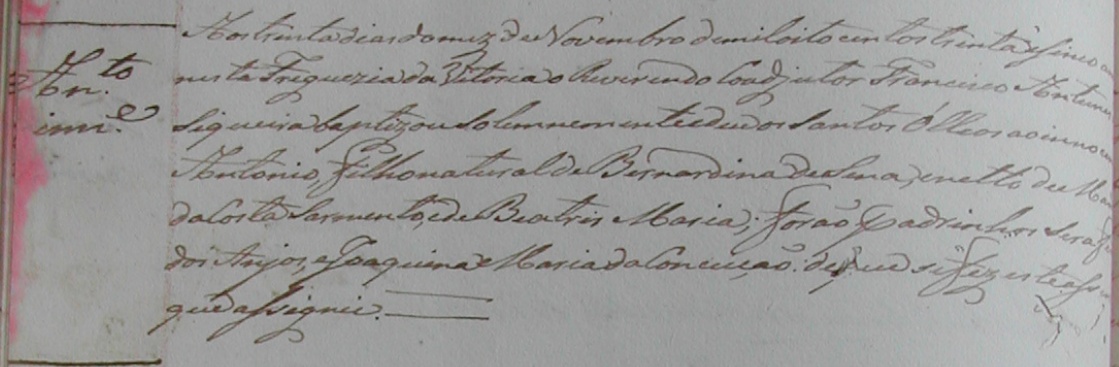 Aos trinta dias do mez de Novembro de mil oito centos trinta e sinco
Ant.to
nesta Freguezia da Vitoria o Reverendo Coadjutor Francisco Antune
inn.e
Siqueira baptizou solemnemente e deu os santos Óllios ao inno
Antonio, filho natural de Bernardina de Sena, e netto de
da Costa Sarmento, e de Beatris Maria; forão Padrinhos Seraf
dos Anjos, e Joaquina Maria da Conceição: de que se fez este ass
que assignei.